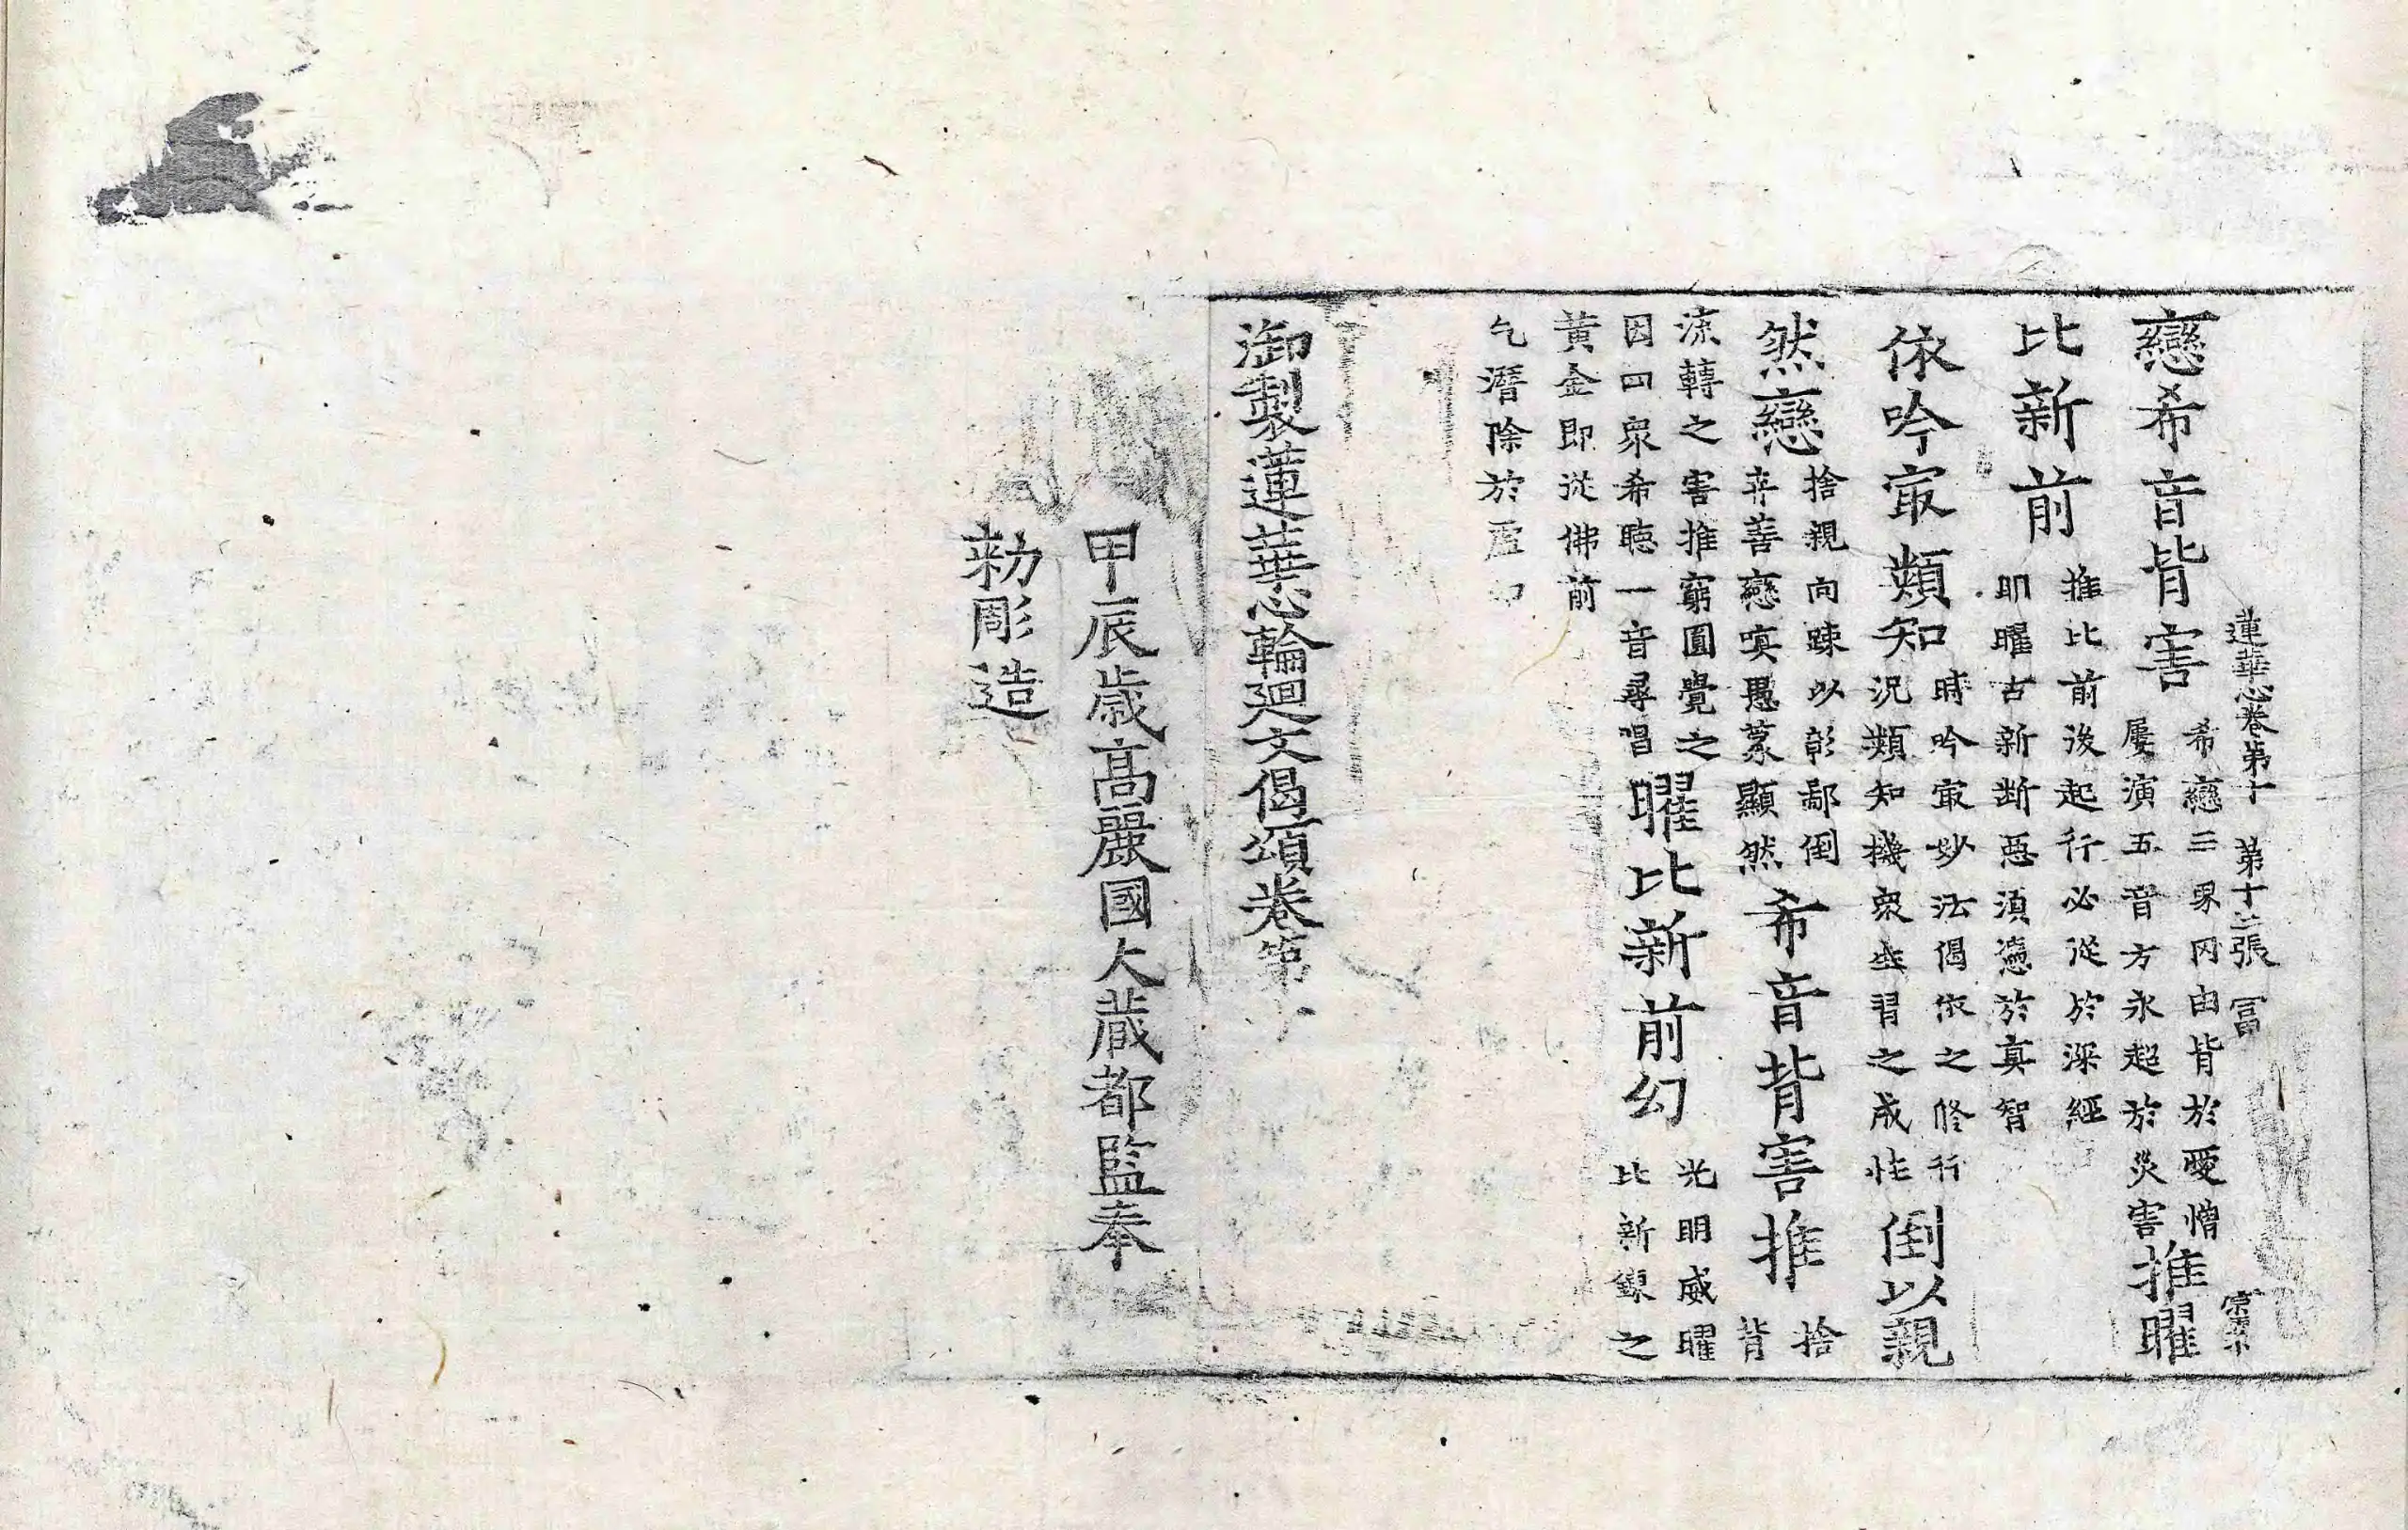 蓮華心卷第十　第十二張　冨
戀希音背害希戀三界冈由背於愛憎屢演五音方永超於災害推曜
比新前推比前後起行必從於深經明曜古新断惡須憑於真智
依吟㝡類知時吟㝡妙法偈依之修行況類知機衆生習之成性倒以親
然戀捨親向踈以彰鄙倒弃善戀嗔愚蒙顯然希音背害推捨背
流轉之害推窮圓覺之因四衆希聴一音尋唱曜比新前幻光明威曜比新鍊之
黄金即從佛前
乞潛除於虛幻
御製蓮華心輪廻文偈頌卷第十
甲辰歳高麗國大蔵都監奉
勑彫造